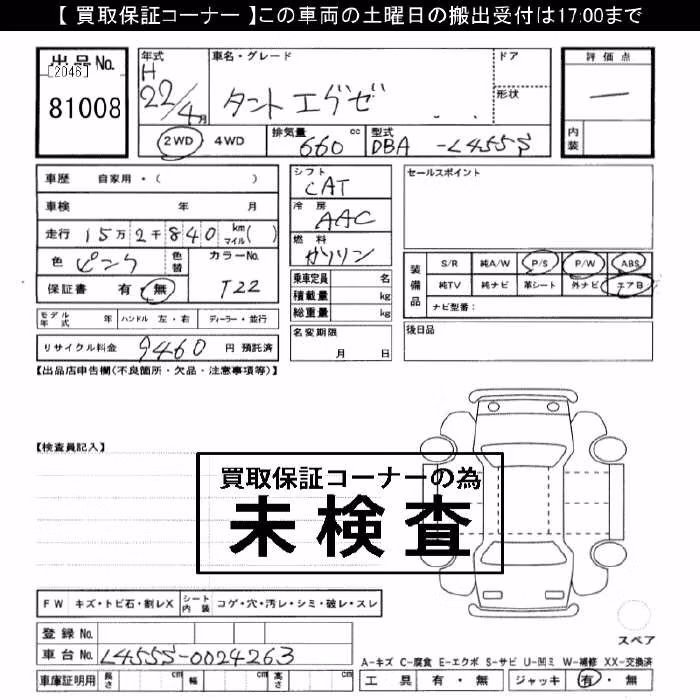 【 買取保証コーナー 】この車両の土曜日の搬出受付は17:00まで
出品No.
[2046]
81008
年式
H
22/4月
車名・グレード
タントエグゼ
ドア
形状
評価点
—
内装
2WD 4WD
排気量 660 cc
型式 DBA -L455S
車歴 自家用・( )
車検 年 月
走行 15万2千840 km マイル( )
色 ピンク 色替
カラーNo. T22
保証書 有・無
シフト
CAT
冷房
AAC
燃料
ガソリン
乗車定員 名
積載量 kg
総重量 kg
セールスポイント
装備品
S/R 純A/W P/S P/W ABS
純TV 純ナビ 革シート 外ナビ エアB
ナビ型番:
モデル年式 年 ハンドル 左・右 ディーラー・並行
リサイクル料金 9460 円 預託済
名変期限
月 日
後日品
【出品店申告欄(不良箇所・欠品・注意事項等)】
【検査員記入】
買取保証コーナーの為
未検査
FW キズ・トビ石・割レX
シート内装 コゲ・穴・汚レ・シミ・破レ・スレ
登録No.
車台No. L455S-0024263
車庫証明用 長さ cm 幅 cm 高さ cm
スペア
A-キズ C-腐食 E-エクボ S-サビ U-凹ミ W-補修 XX-交換済
工具 有・無 ジャッキ 有・無